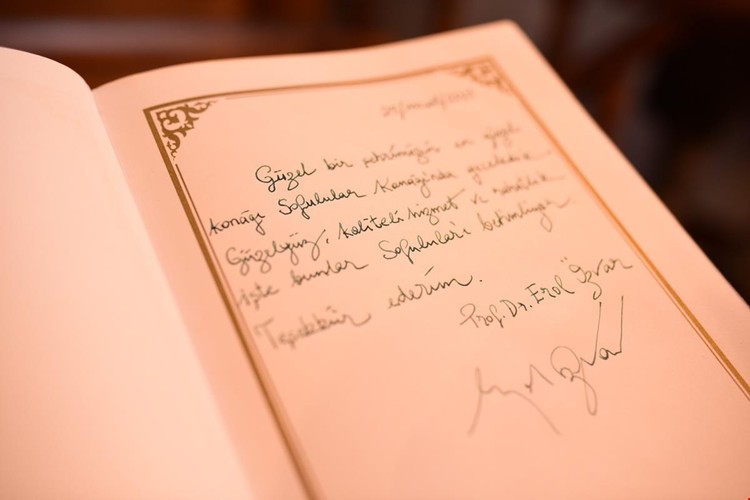 Güzel bir şehrimizin en güzel
konağı Sofulular Konağında geceledik
Güleryüz, kaliteli hizmet ve rahatlık
işte bunlar Sofuluları betimliyor
Teşekkür ederim.
Prof. Dr. Erol Özvar